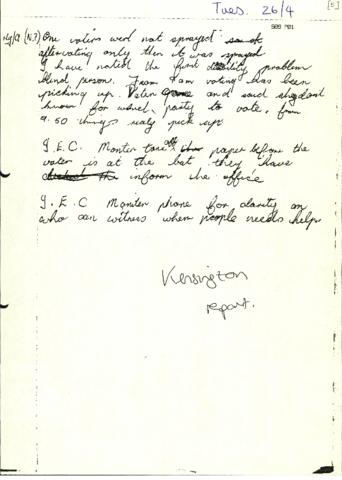 Tues. 26/4
[5]
S09 M01
(N.7) One voters were not sprayed
after voting only then it was sprayed
I have noted the first problem
blind person. From 7am voting has been
picking up. Voter came and said she dont
know for which party to vote, from
9.50 things realy pick up
I.E.C. Moniter paper before the
voter is at the but they have
inform the office
I.E.C Moniter phone for clarity on
who can witness when people needs help.
Kensington
report.